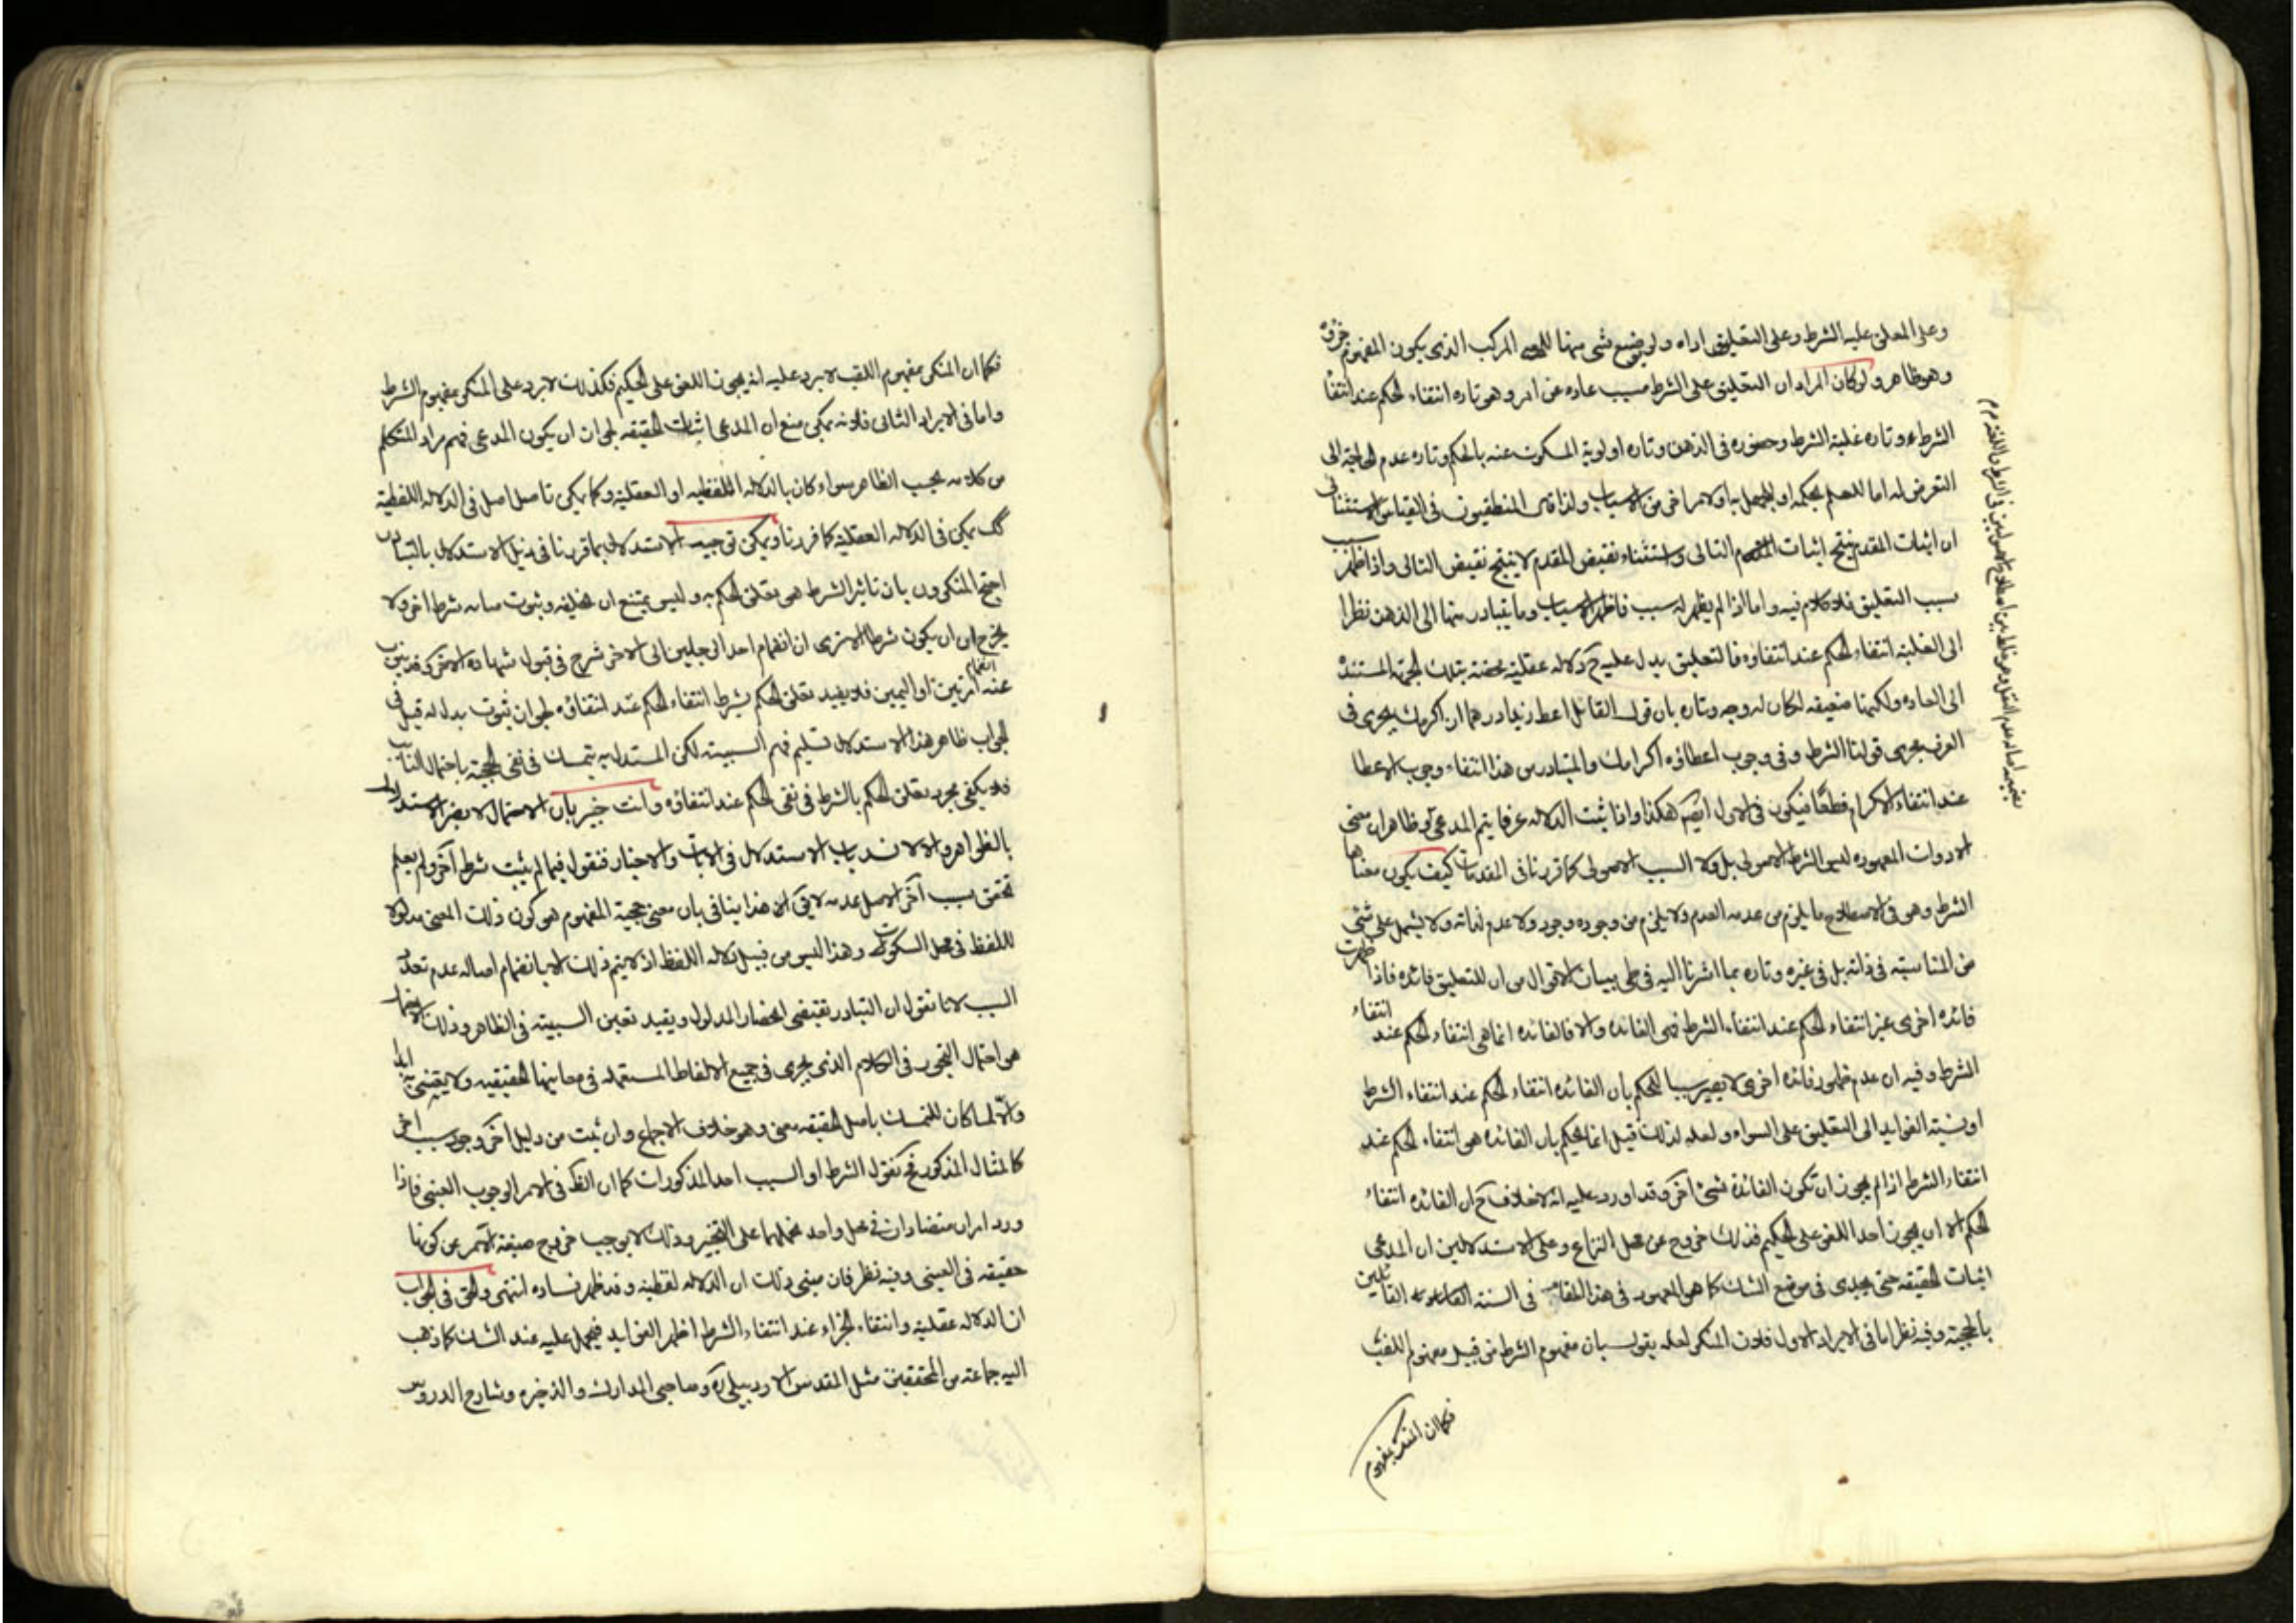 وعلى المعلق عليه الشرط وعلى التعليق اداه ولم يوضع شى منها للمعنى المركب الذى يكون المفهوم جزؤه
وهو ظاهر ولو كان المراد ان التعليق على الشرط مسبب عاده عن امر وهو تاره انتفاء الحكم عند انتفا
الشرط و تاره غلبة الشرط وحضوره فى الذهن وتاره اولوية المسكوت عنه بالحكم وتاره عدم الحاجة الى
التعرض له اما للعلم بحكمه او للجهل به او لامر اخر من الاسباب ولذا قال المنطقيون فى القياس الاستثنائى
ان اثبات المقدم ينتج اثبات التالى واستثناء نقيض المقدم لا ينتج نقيض التالى واذا ظهر
سبب التعليق فلا كلام فيه واما اذا لم يظهر له سبب فاظهر الاسباب وما يتبادر منها الى الذهن نظرا
الى الغلبة انتفاء الحكم عند انتفاؤه فالتعليق يدل عليه ح دلاله عقلية محضة بتلك الجهة المستندة
الى العاده ولكنها ضعيفه لكان له وجه وتاره بان قول القائل اعط زيدا درهما ان اكرمك يجرى فى
العرف مجرى قولنا الشرط فى وجوب اعطاؤه اكرامك والمتبادر من هذا انتفاء وجوب الاعطا
عند انتفاء الاكرام قطعا فيكون فى الاول ايضا هكذا واذا ثبت الدلاله عرفا يتم المدعى و ظاهر ان معنى
الادوات المعهوده ليس الشرط الاصولى بل ولا السبب الاصولى كما قررنا فى المقدمات كيف يكون معناها
الشرط وهو فى الاصطلاح ما يلزم من عدمه العدم ولا يلزم من وجوده وجود ولا عدم لذاته ولا يشمل على شئ
من المناسبة فى ذاته بل فى غيره وتاره بما اشرنا اليه فى طى بيان الاقوال من ان للتعليق فائده فاذا ظهرت
فائده اخرى غير انتفاء الحكم عند انتفاء الشرط فهى الفائده والا فالفائده انما هى انتفاء الحكم عند انتفاء
الشرط وفيه ان عدم ظهور فائده اخرى لا يصير سببا للحكم بان الفائده انتفاء الحكم عند انتفاء الشرط
اذ نسبة الفوايد الى التعليق على السواء ولعله لذلك قيل انما يحكم بان الفائده هى انتفاء الحكم عند
انتفاء الشرط اذا لم يجوز ان تكون الفائدة شئ اخر وقد اورد عليه انه لا خلاف ح ان الفائده انتفاء
الحكم الا ان يجوز احد اللغو على الحكيم فذلك خروج عن محل النزاع وعلى الاستدلالين ان المدعى
اثبات الحقيقه حتى يجدى فى موضع الشك كما هو المعهود فى هذا المقام فى السنة القائلين
بالحجية وفيه نظر اما فى الايراد الاول فلان المنكر لعله يقول بان مفهوم الشرط من قبيل مفهوم اللقب
فكما ان المنكر بمفهوم
فكما ان المنكر بمفهوم اللقب لا يرد عليه انه يجوز اللغو على الحكيم فكذلك لا يرد على المنكر بمفهوم الشرط
واما فى الايراد الثانى فلانه يمكن منع ان المدعى اثبات الحقيقه لجواز ان يكون المدعى فهم مراد المتكلم
من كلامه بحسب الظاهر سواء كان بالدلاله اللفظيه او العقلية وكما يمكن تاصيل اصل فى الدلاله اللفظية
كك يمكن فى الدلاله العقلية كما قررنا ويمكن توجيه الاستدلال بما قررنا فى ذيل الاستدلال بالتبادر
احتج المنكرون بان تاثير الشرط هو تعلق الحكم به وليس يمتنع ان يخلفه وينوب منابه شرط اخر ولا
يخرج من ان يكون شرطا الا ترى ان انضمام احد الرجلين الى الاخر شرط فى قبول شهادة الاخر وقد ينوب
عنه انضمام امرتين او اليمين فلا يفيد تعلق الحكم بشرط انتفاء الحكم عند انتفاؤه لجواز ثبوت بدل له قيل فى
الجواب ظاهر هذا الاستدلال تسليم فهم السببية لكن المستدل به يتمسك فى نفى الحجية باحتمال النائب
فلا يكفى مجرد تعلق الحكم بالشرط فى نفى الحكم عند انتفاؤه وانت خبير بان الاحتمال لا يضر الاستدلال
بالظواهر والا لانسد باب الاستدلال فى الايات والاخبار فنقول فيما لم يثبت شرط آخر ولم يعلم
تحقق سبب آخر الاصل عدمه لا يق ان هذا ينافى بان معنى حجية المفهوم هو كون ذلك المعنى مدلولا
للفظ فى محل السكوت وهذا ليس من قبيل دلاله اللفظ اذ لا يتم ذلك الا بانضمام اصاله عدم تعدد
السبب لانا نقول ان التبادر يقتضى انحصار المدلول ويفيد تعين السببية فى الظاهر وذلك الاحتمال
هو احتمال التجوز فى الكلام الذى يجرى فى جميع الالفاظ المستعمله فى معانيها الحقيقيه ولا يعتنى به ابدا
والا لما كان للتمسك باصل الحقيقه معنى وهو خلاف الاجماع وان ثبت من دليل اخر وجود سبب اخر
كالمثال المذكور فح نقول الشرط او السبب احد المذكورات كما ان الظ فى الامر الوجوب العينى فاذا
ورد امران متضادان فى محل واحد نحملهما على التخيير وذلك لا يوجب خروج صيغة الامر عن كونها
حقيقه فى العينى وفيه نظر فان مبنى ذلك ان الدلاله لفظية وقد ظهر فساده انتهى والحق فى الجواب
ان الدلاله عقلية وانتفاء الجزاء عند انتفاء الشرط اظهر الفوايد فيحمل عليه عند الشك كما ذهب
اليه جماعة من المحققين مثل المقدس الاردبيلى ره وصاحبى المدارك والذخيره وشارح الدروس